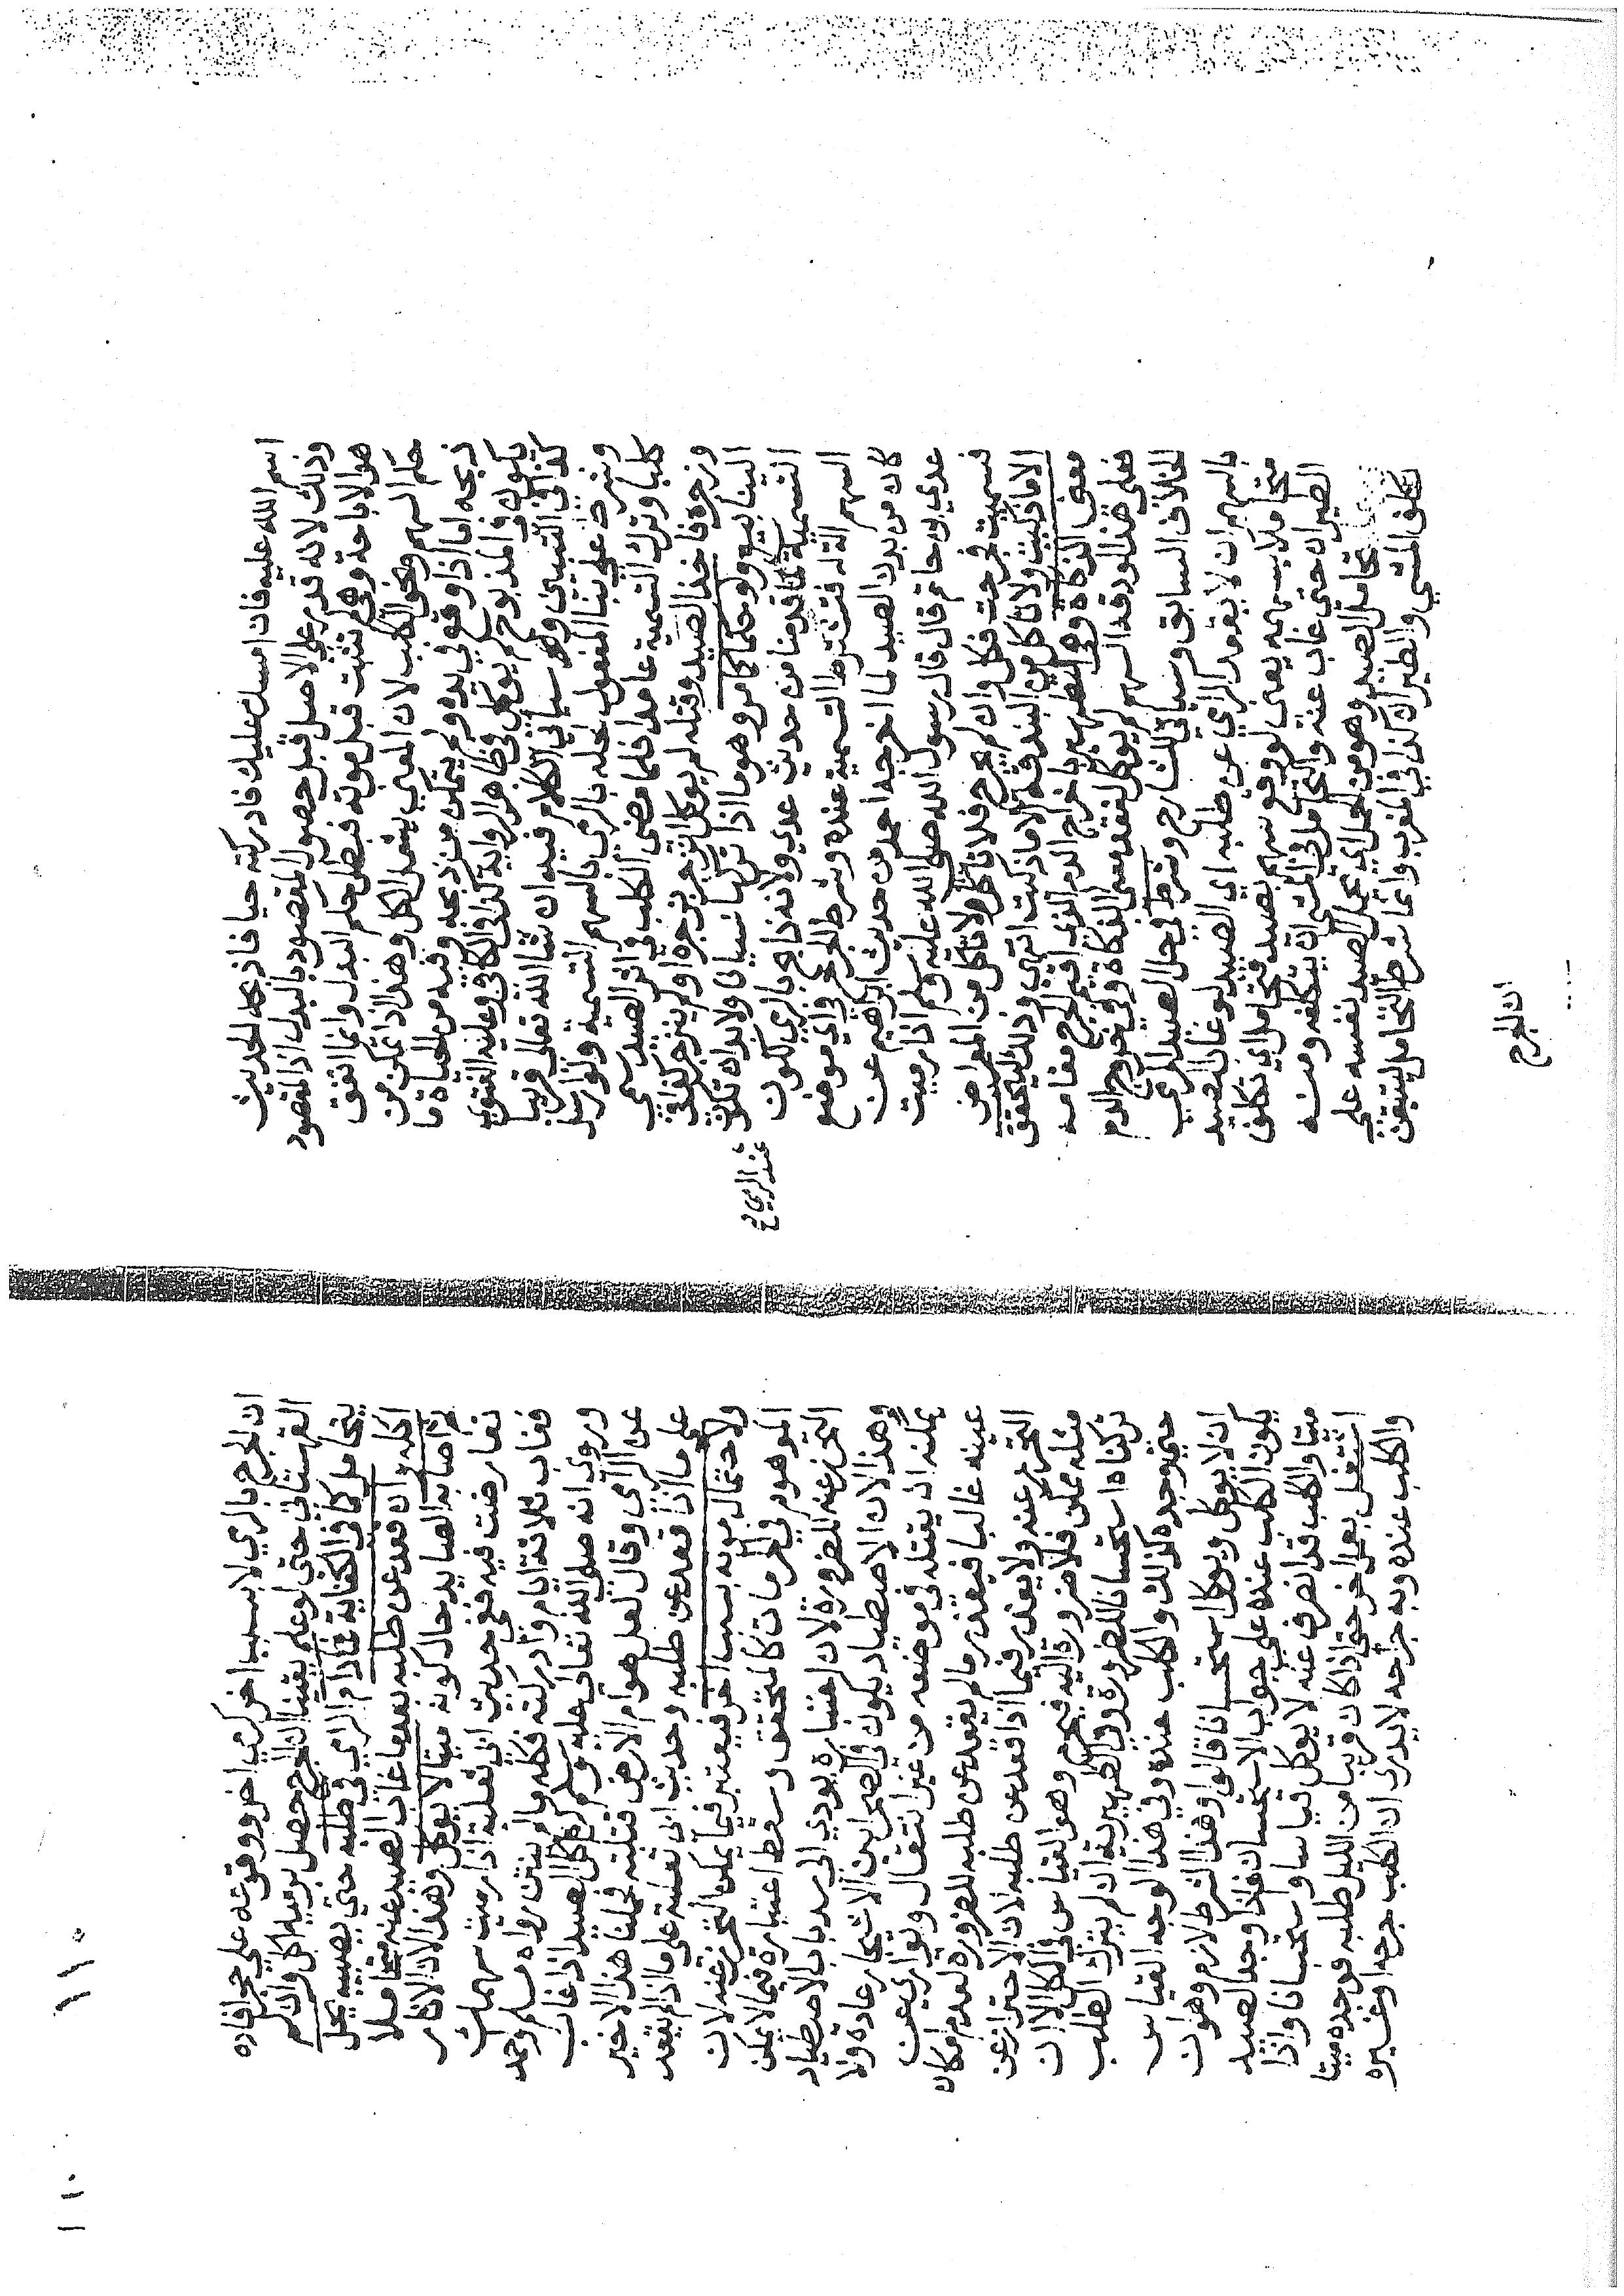 اسم الله عليه فان امسك عليك فادركته حيا فاذبحه الحديث
وذلك لانه قدر علي الاصل قبل حصول المقصود بالبدل اذ المقصود
هو الاباحة وهي لم تثبت قبل موته فبطل حكم البدل وانما اتفق
حكم السهم ونحو الكلب لان المعني يشمل الكل وهذا اذا تمكن من
ذبحه اما اذا وقع في يده ولم يتمكن من ذبحه وفيه من الحياة ما
يكون في المذبوح لم يوكل في ظاهر الرواية كذا في الكافي وعليه الفتوي
كما في التبيين وسياتي الكلام فيه ان شا الله تعالي قريبا
وشرط علي بنا المفعول لحله بالرمي بالسهم التسمية ولو ارسل
كلبا وترك التسمية عامدا فلما مضي الكلب في اثر الصيد سمي
وزجره فاخذ الصيد وقتله لم يوكل انزجر بزجره او لم ينزجر كذا في
الينابيع ولو حكما كما مر وهو ما اذا تركها نسيانا ولا بد ان تكون
التسمية عند الرمي لما قدمنا من حديث عدي ولانه ذابح بالرمي لكون
السهم الة له فتشترط التسمية عنده وشرط الجرح في اي موضع
كان من بدن الصيد لما اخرجه احمد من حديث ابراهيم عن
عدي بن حاتم قال قال رسول الله صلي الله عليه وسلم اذا رميت
فسميت فجرحت فكل وان لم يجرح فلا تاكل ولا تاكل من المعراض
الا ما ذكيت ولا تاكل من البندقة الا ما ذكيت انتهي وذلك ليتحقق
معني الذكاة وهو التطهير باخراج الدم الذي اقيم الجرح مقامه
فعلي هذا لو دقه السهم لم يوكل لفقد معني الذكاة وفي خروج الدم
الخلاف السابق وسياتي للشارح وشرط في حل الصيد المرمي
بالسهم ان لا يقعد الرامي عن طلبه اي الصيد لو غاب الصيد
متحاملا بسهمه يعني لو وقع سهم بصيد فتحامل اي تكلف
الطيران حتي غاب عنه والتحامل في المشي ان يتكلفه ومنه
تحامل الصيد وهو من الحمل اي تحمل الصيد نفسه علي
تكلف المشي والطيران كذا في المغرب وانما شرط التحامل ليتيقن
ان الجرح
ان الجرح بالرمي لا بسبب اخر كرمي اخر ووقوعه علي حجر افاده
القهستاني حتي لو علم يقينا ان الجرح حصل برميه اكل وان لم
يتحامل كما في الكفاية فمادام الرامي في طلبه حتي يصيبه يحل
اكله وان قعد عن طلبه بعدما غاب الصيد عنه متحاملا
ثم اصابه الصايد حال كونه ميتا لا يوكل وهذا لان الاثار
تعارضت فيه ففي حديث ابي ثعلبة اذا رميت سهمك
فغاب ثلاثة ايام وادركته فكله ما لم ينتن رواه مسلم واحمد
وروي انه صلي الله تعالي عليه وسلم كره اكل الصيد اذا غاب
عن الرامي وقال لعل هوام الارض قتلته فحملنا هذا الاخير
علي ما اذا قعد عن طلبه وحديث ابي ثعلبة علي ما اذا لم يقعد
ولاحتمال موته بسبب اخر فيعتبر فيما يمكن التحرز عنه لان
الموهوم في الحرمات كالمتحقق وسقط اعتباره فيما لا يمكن
التحرز عنه للضرورة لان اعتباره يودي الي سد باب الاصطياد
وهذا لان الاصطياد يكون في الصحرا بين الاشجار عادة ولا
يمكنه ان يقتله في موضعه من غير انتقال وتواري عن
عينه غالبا فيعذر ما لم يقعد عن طلبه للضرورة لعدم امكان
التحرز عنه ولا يعذر فيما اذا قعد عن طلبه لان الاحتراز عن
مثله ممكن فلا ضرورة اليه فيحرم وهو القياس في الكل الا ان
تركناه استحسانا للضرورة وفي الظهيرية ان لم يترك الطلب
حتي وجده كذلك والكلب عنده وفي هذا الوجه القياس
ان لا يوكل ويوكل استحسانا قالوا وهذا الشرط لازم وهو ان
يكون الكلب عنده علي جواب الاستحسان فاذا وجد الصيد
ميتا والكلب قد انصرف عنه لا يوكل قياسا واستحسانا واذا
اشتغل بعمل اخر حتي اذا كان قريبا من الليل طلبه فوجده ميتا
والكلب عنده وبه جراحة لا يدري ان الكلب جرحه او غيره
١١٠